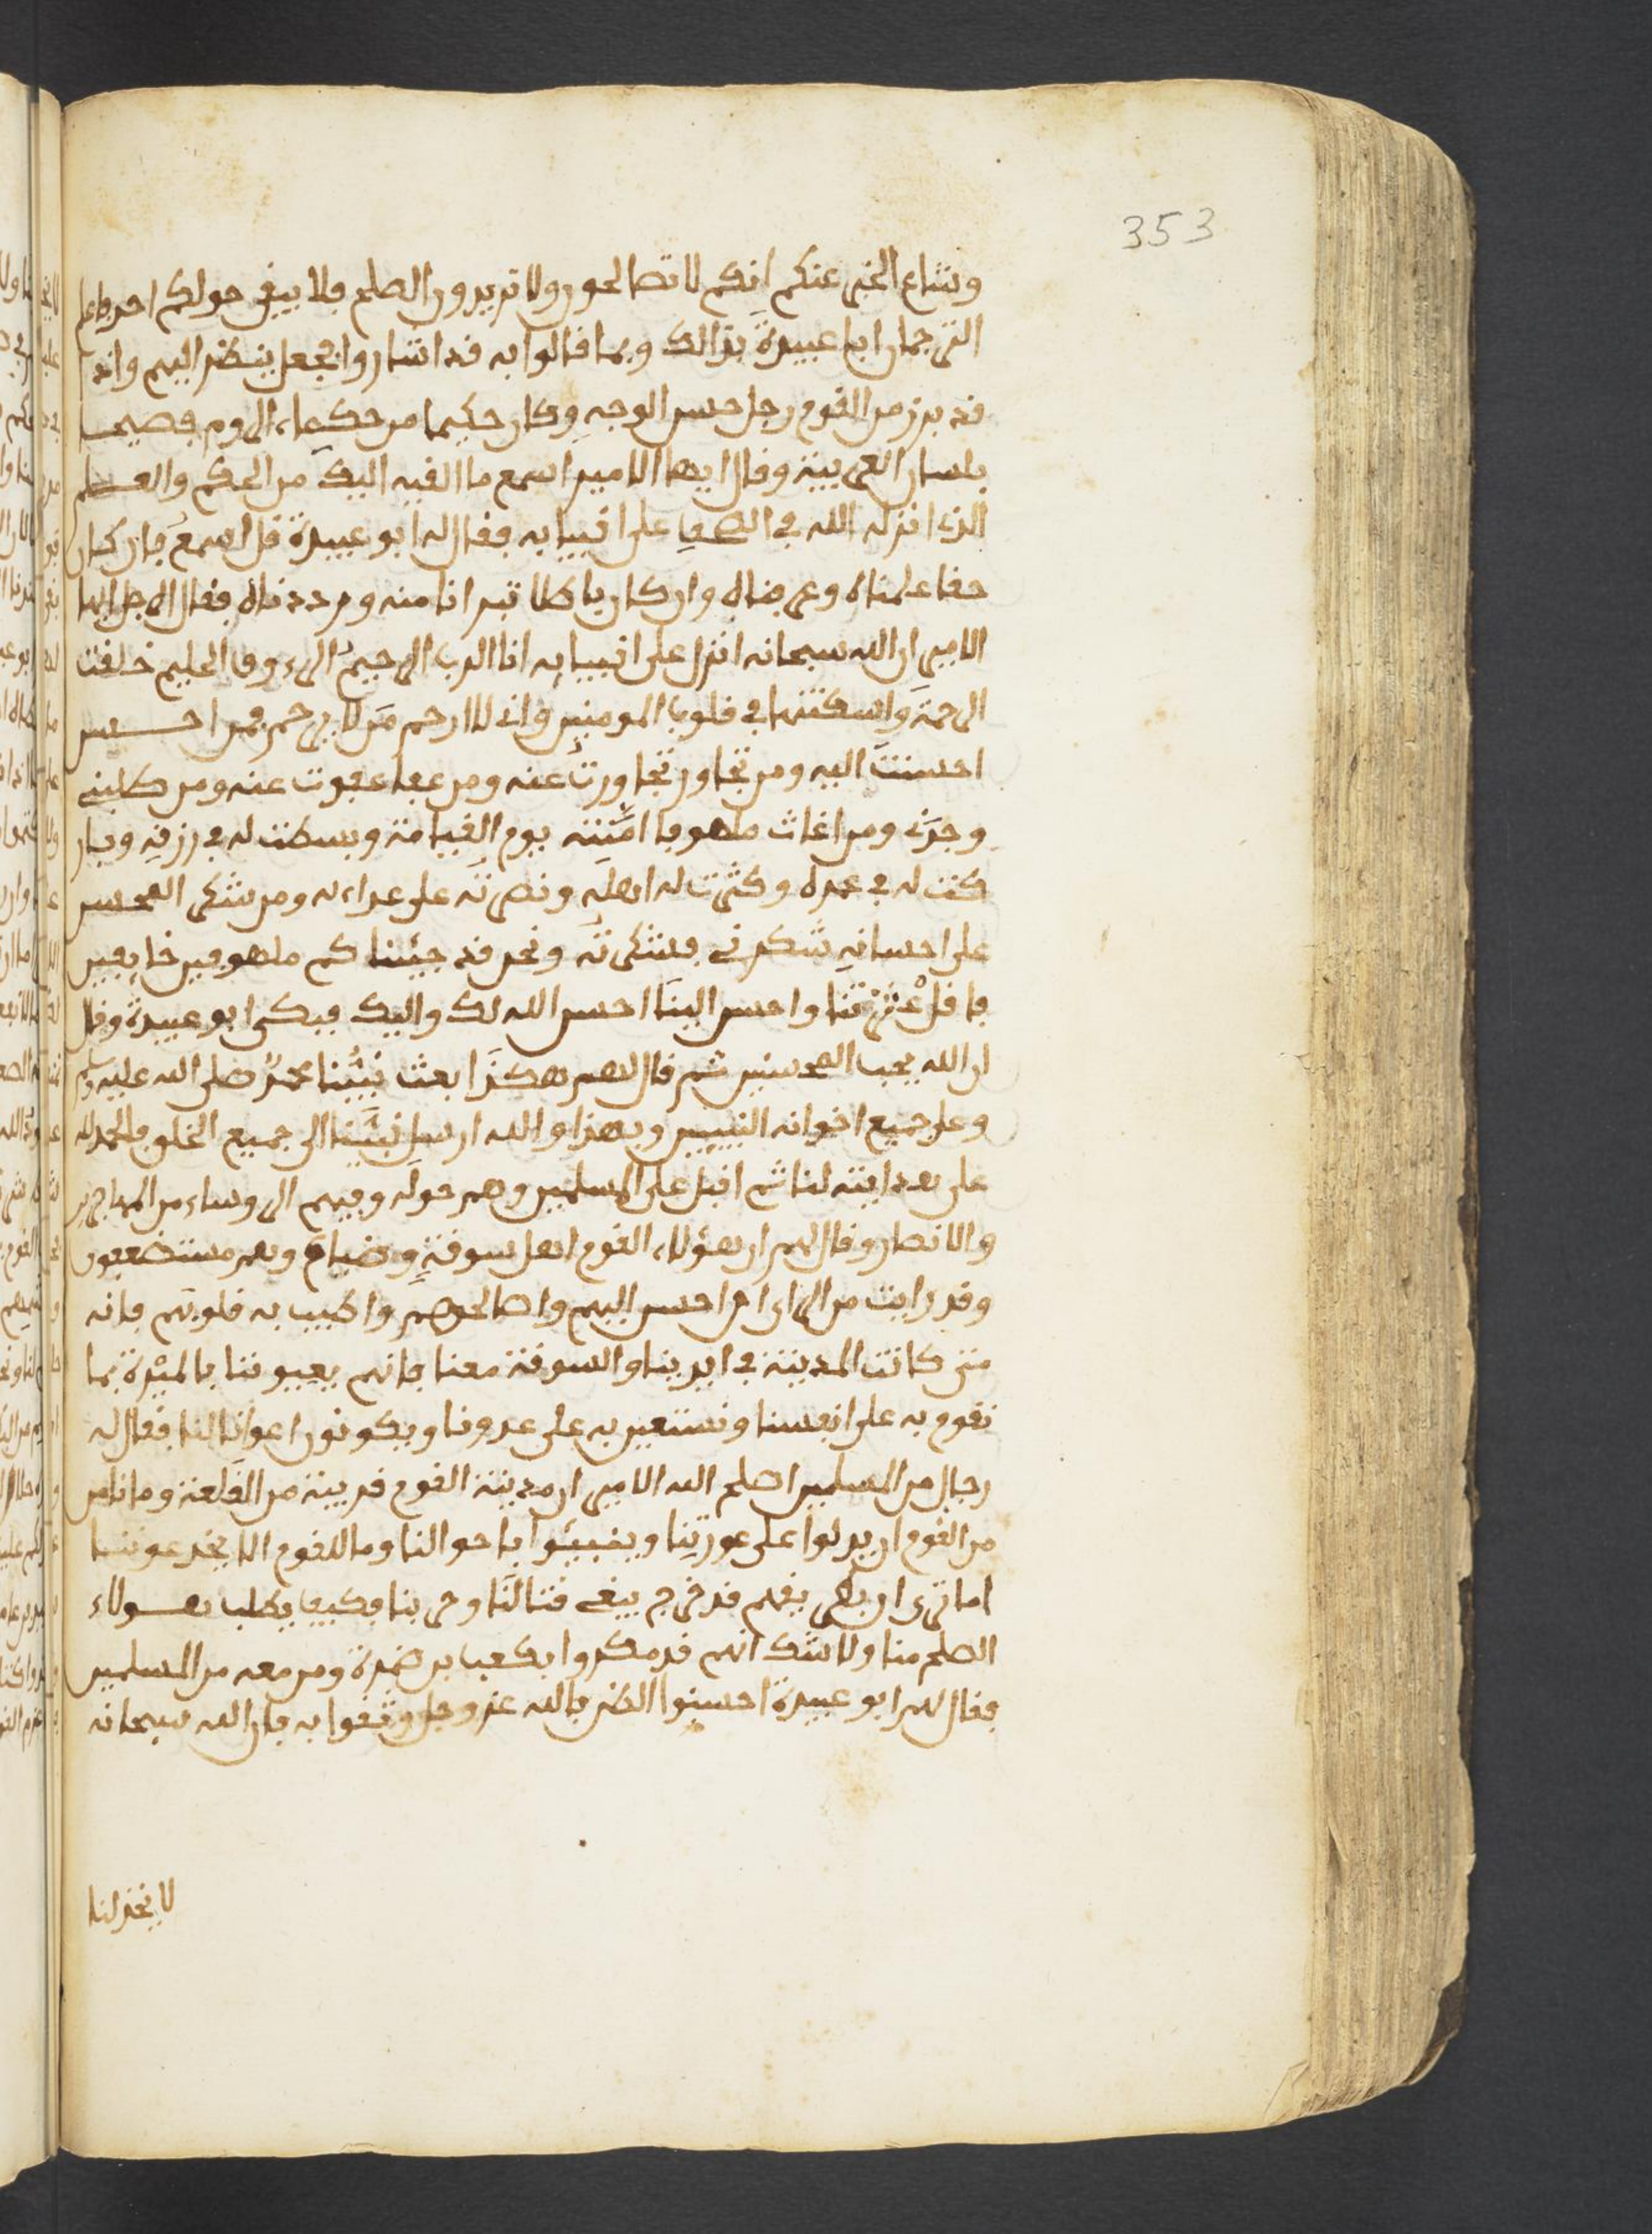 353
وشاع الخبر عنكم انكم لا تصالحون ولا تريدون الصلح فلا يبقى حولكم احد فاعلم
الترجمان ابا عبيدة بذالك وبما قالوا به قد اشاروا فجعل ينظر اليهم واذا
قد برز من القوم رجل حسن الوجه وكان حكيما من حكماء الروم فصيحا
بلسان العربية وقال ايها الامير اسمع ما القيه اليك من الحكم والعلم
الذي انزله الله في الصحف على انبيايه فقال له ابو عبيدة قل اسمع فان كان
حقا علمناه وعرفناه وان كان باطلا تبرانا منه ورددناه فقال الرجل ايها
الامير ان الله سبحانه انزل على انبيايه انا الرب الرحيم الرءوف الحليم خلقت
الرحمة واسكنتها في قلوب المومنين واني لا ارحم من لا يرحم فمن احسن
احسنت اليه ومن تجاوز تجاوزت عنه ومن عفا عفوت عنه ومن طلبني
وجدني ومن اغاث ملهوفا امنته يوم القيامة وبسطت له في رزقه وبار
كت له في عمره وكثرت له اهله ونصرته على عداءله ومن شكر المحسن
على احسانه شكرني فشكرته ونحن قد جيناكم ملهوفين خايفين
فاقل عثرتنا واحسن الينا احسن الله لك واليك فبكى ابو عبيدة وقال
ان الله يحب المحسنين ثم قال اللهم هكذا بعث نبينا محمد صلى الله عليه وسلم
وعلى جميع اخوانه النبيين وبهذا والله ارسل نبينا الى جميع الخلق فالحمد لله
على هدايته لنا ثم اقبل على المسلمين وهم حوله وفيهم الروساء من المهاجرين
والانصار وقال لهم ان هؤلاء القوم اهل سوقة وضياع وهم مستضعفون
وقد رايت من الراي ان احسن اليهم واصالحهم واطيب به قلوبهم فانه
متى كانت المدينة في ايدينا والسوقة معنا فانهم يعينوننا بالميرة بما
نقوم به على انفسنا ونستعين به على عدونا ويكونون اعوانا لنا فقال له
رجال من المسلمين اصلح الله الامير ان مدينة القوم قريبة من القلعة وما نامن
من القوم ان يدلوا على عورتنا ويخبروا باحوالنا وما للقوم الا يخدعوننا
اما ترى ان بطريقهم قد خرج يبغي قتالنا وحربنا فكيف يطلب هولاء
الصلح منا ولا شك انهم قد مكروا بكعب بن ضمرة ومن معه من المسلمين
فقال لهم ابو عبيدة احسنوا الظن بالله عز وجل وثقوا به فان الله سبحانه
لا يخذلنا